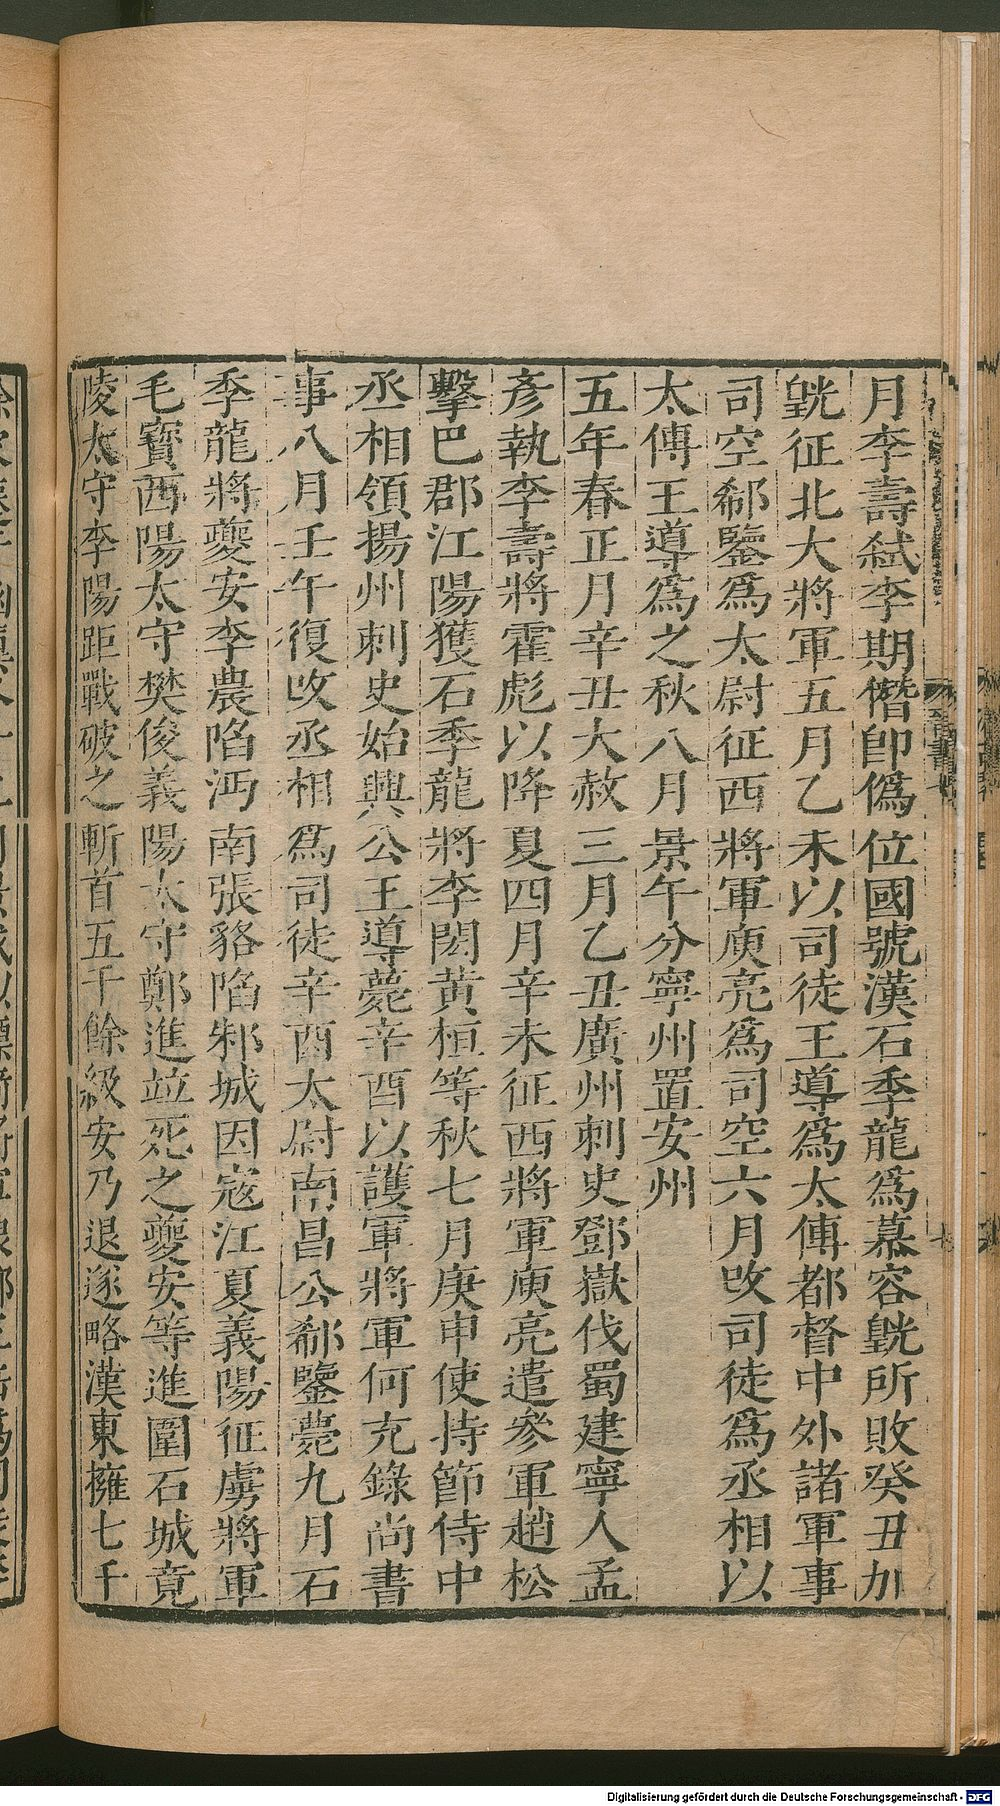 月李壽弒李期僭即僞位國號漢石季龍爲慕容皝所敗癸丑加
皝征北大將軍五月乙未以司徒王導爲太傅都督中外諸軍事
司空郗鑒爲太尉征西將軍庾亮爲司空六月改司徒爲丞相以
太傅王導爲之秋八月景午分寧州置安州
五年春正月辛丑大赦三月乙丑廣州刺史鄧嶽伐蜀建寧人孟
彥執李壽將霍彪以降夏四月辛未征西將軍庾亮遣參軍趙松
擊巴郡江陽獲石季龍將李閎黃桓等秋七月庚申使持節侍中
丞相領揚州刺史始興公王導薨辛酉以護軍將軍何充錄尚書
事八月壬午復改丞相爲司徒辛酉太尉南昌公郗鑒薨九月石
季龍將夔安李農陷沔南張貉陷邾城因寇江夏義陽征虜將軍
毛寶西陽太守樊俊義陽太守鄭進竝死之夔安等進圍石城竟
陵太守李陽距戰破之斬首五千餘級安乃退遂略漢東擁七千
Digitalisierung gefördert durch die Deutsche Forschungsgemeinschaft - DFG